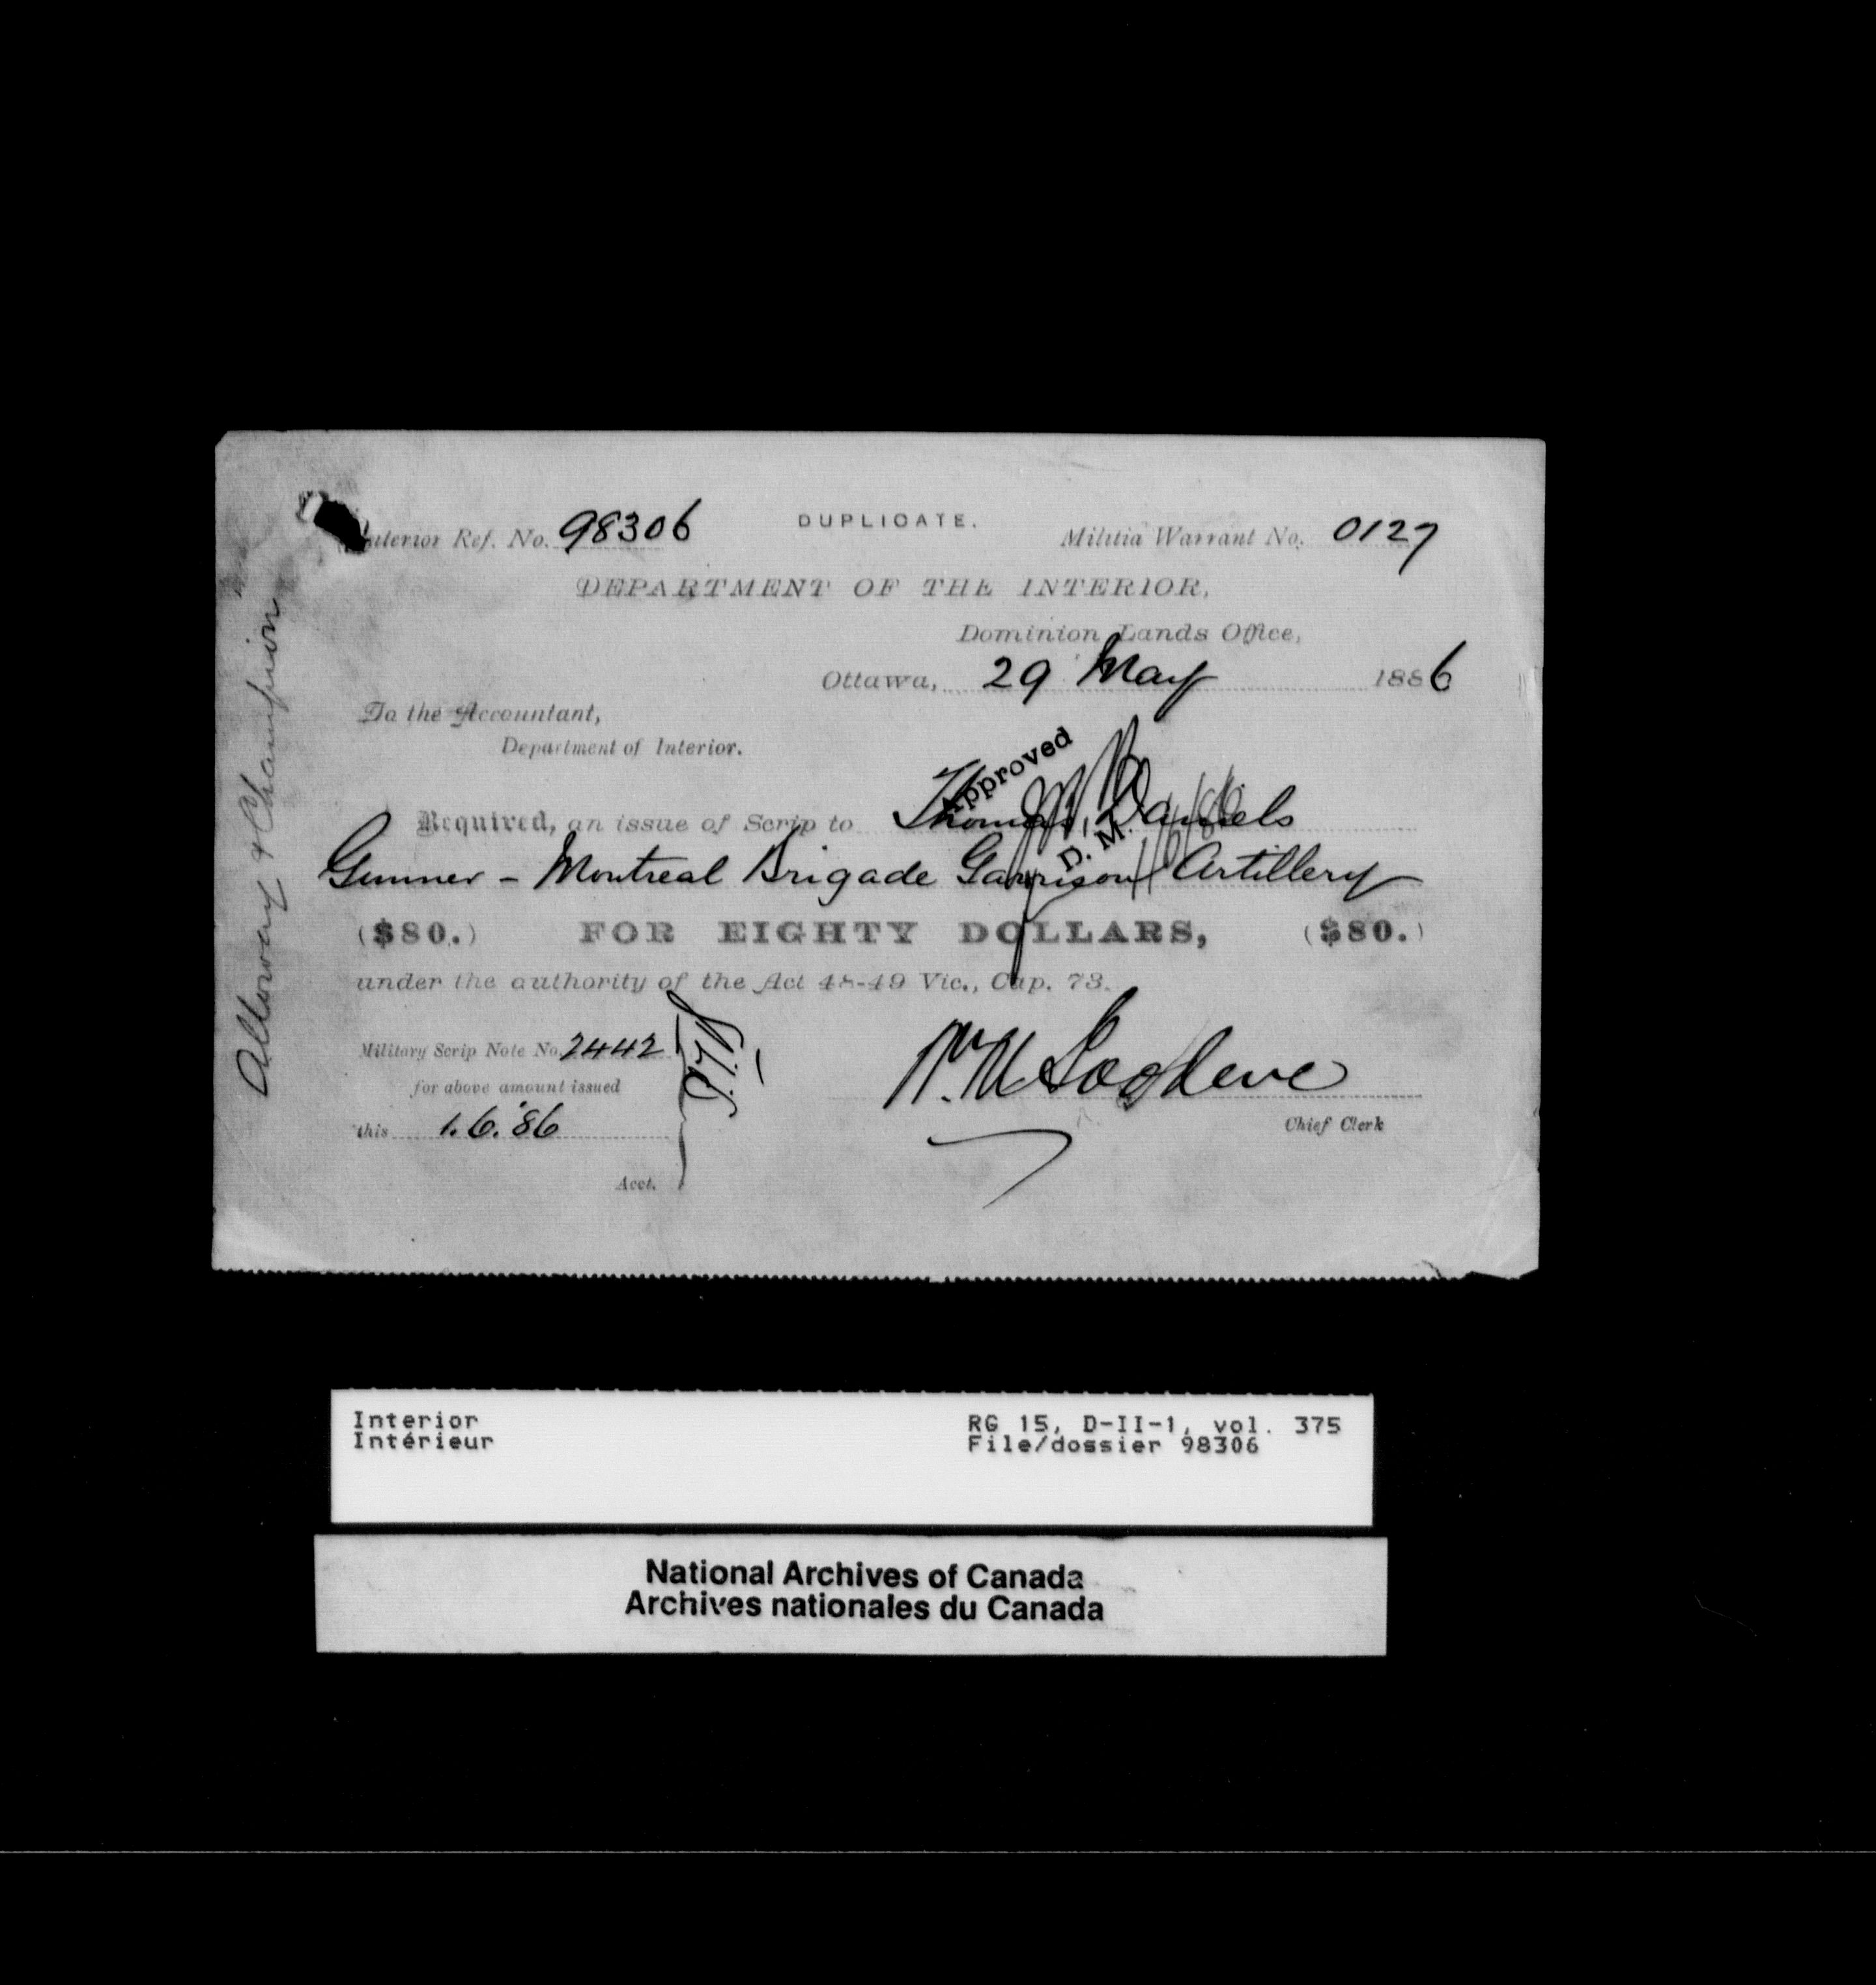 Interior Ref. No. 98306
DUPLICATE.
Militia Warrant No. 0127
DEPARTMENT OF THE INTERIOR,
Dominion Lands Office,
Ottawa, 29 May 1886
To the Accountant,
Department of Interior.
Approved
D. M.
Required, an issue of Scrip to Thomas Daniels
Gunner - Montreal Brigade Garrison Artillery
($80.) FOR EIGHTY DOLLARS, ($80.)
under the authority of the Act 48-49 Vic., Cap. 73.
Military Scrip Note No. 2442
for above amount issued
this 1.6.'86
Acct.
Chief Clerk
Alloway & Champion
Interior
Intérieur
RG 15, D-II-1, vol. 375
File/dossier 98306
National Archives of Canada
Archives nationales du Canada